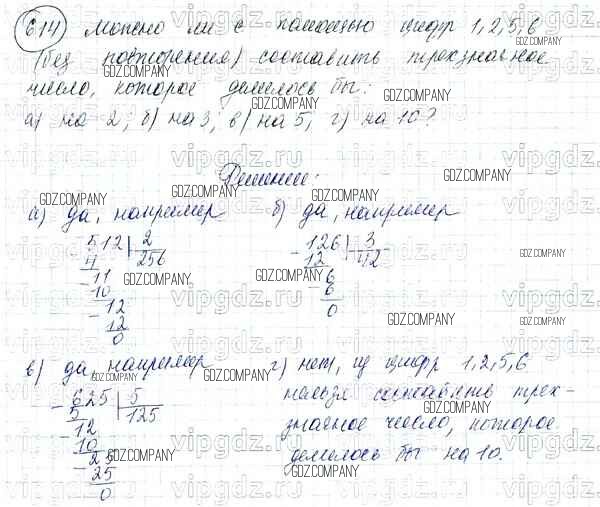 614 Можно ли с помощью цифр 1,2,5,6
(без повторения) составить трехзначное
число, которое делилось бы:
а) на 2; б) на 3; в) на 5; г) на 10?
Решение:
а) да, например
512 | 2
4 256
- 11
10
- 12
12
0
б) да, например
- 126 | 3
12 42
- 6
6
0
в) да, например
- 625 | 5
5 125
- 12
10
- 25
25
0
г) нет, из цифр 1,2,5,6
нельзя составить трех-
значное число, которое
делилось бы на 10.
GDZ.COMPANY
vipgdz.ru